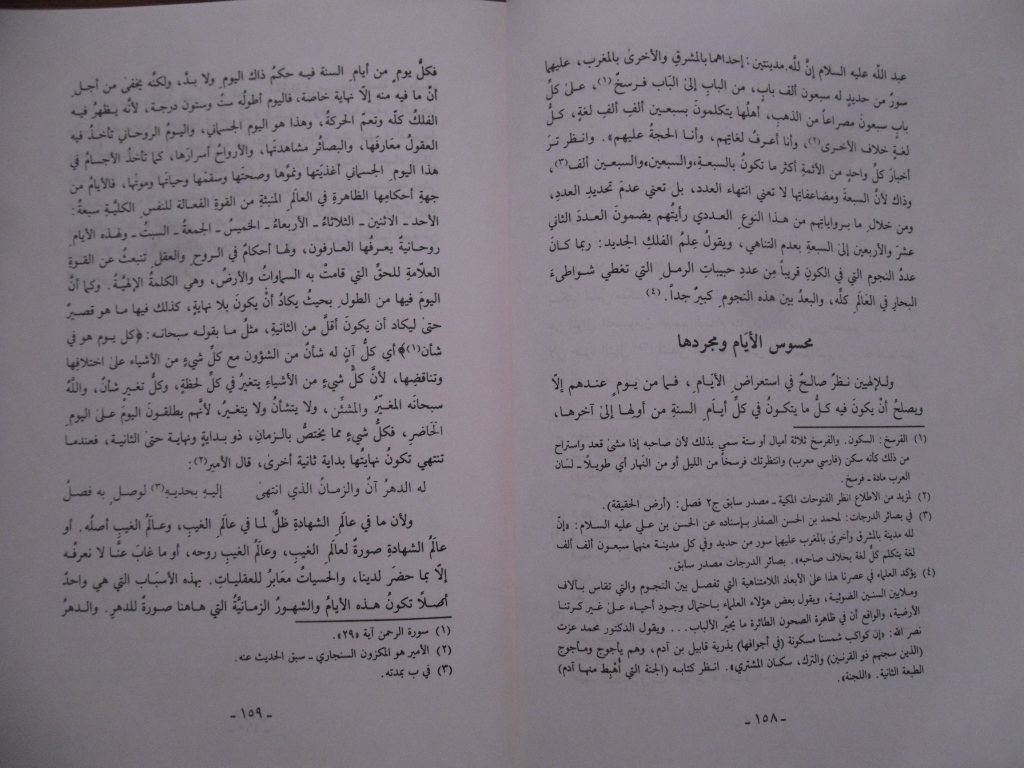 عبد اللّه عليه السلام إنَّ للّه مدينتين: إحداهما بالمشرقِ والأخرىٰ بالمغرب، عليهما
سورٌ من حديدٍ له سبعون ألف بابٍ، من البابِ إلىٰ البَاب فـرسـخٌ(١)، عـلىٰ كـلِّ
بابٍ سبعونَ مصراعاً من الذهبِ، أهلُها يتكلمونَ بسبعـين ألفِ ألفِ لغةٍ، كـلُّ
لغةٍ خلاف الأخرىٰ(٢)، وأنا أعرفُ لغاتِهم، وأنـا الحجةُ عليهم». وانـظر تـرَ
أخبارَ كلِّ واحدٍ من الأئمةِ أكثرَ ما تكونُ بالسبعةِ، والسبعين» والسبعين ألف(٣)،
وذاك لأنَّ السبعةَ ومضاعفاتِها لا تعني انتهاءَ العدد، بل تعني عدمَ تحديدِ العددِ،
ومن خلال ما بروايـاتِهم من هـذا النوع العـددي رأيتُهم يضمونَ العـددَ الثاني
عشرَ والأربعين إلىٰ السبعةِ بعدم التناهي، ويقولُ عِلمُ الفلكِ الجديد: ربمـا كـانَ
عددُ النجومِ التي في الكونِ قريباً مِن عددِ حبيباتِ الرمـلِ التي تغطي شـواطىءَ
البحارِ في العَالَم كلِّه، والبعدُ بين هذه النجومِ كبيرٌ جداً. (٤)
محسوس الأيَام ومجردها
ولـلإلهيين نـظرٌ صـالـحٌ في استعراضِ الأيّـامِ، فـما من يـومٍ عنـدهم إلّا
ويصلحُ أنْ يكونَ فيه كـلُّ مـا يتكـونُ في كلِّ أيـامِ السنةِ من أولِهـا إلىٰ آخرهـا،
(١) الفرسَخ: السكون. والفرسخ ثلاثة أميال أو ستة سمي بذلك لأن صاحبه إذا مشىٰ قعد واستراح
من ذلك كأنه سكن (فارسي معرب) وانتظرتك فرسخاً من الليل أو من النهار أي طويـلًا ـ لسَان
العرب مادة ـ فرسخ.
(٢) لمزيد من الاطلاع انظر الفتوحات المكية ـ مصدر سابق ج٢ فصل: (أرض الحقيقة).
(٣) في بصائر الدرجات: لمحمد بن الحسن الصفار بإسناده عن الحسن بن علي عليه السلام: «إنّ
لله مدينة بالمشرق وأخرى بالمغرب عليهما سور من حديد وفي كل مدينـة منهما سبعـون ألف ألف
لغة يتكلم كلُّ لغة بخلاف صاحبه». بصائر الدرجات مصدر سابق.
(٤) يؤكد العلماء في عصرنا هذا علىٰ الأبعاد اللامتناهية التي تفصل بين النجـوم والتي تقاس بـآلاف
وملايين السنين الضوئية، ويقول بعض هؤلاء العلماء بـاحتمال وجـود أحيـاء عـلىٰ غـير كـرتنـا
الأرضية، والواقع أن في ظاهرة الصحون الطائرة ما يحيّر الألباب... ويقول الدكتور محمد عزت
نصر الله: «إن كواكب شمسنا مسكونة (في أجوافها) بذرية قابيل بن آدم، وهم يأجوج ومأجوج
(الذين سجنهم ذو القرنين) والترك، سكـان المشتري». انـظر كتابـه (الجنة التي أُهبِط منهـا آدم)
الطبعة الثانية. «اللجنة».
ـ ١٥٨ ـ
فكلُّ يـومٍ من أيامِ السنة فيـه حكمُ ذاك اليومِ ولا بـدَّ، ولكنَّه يخفىٰ من أجـلِ
أنَّ ما فيه منه إلّا نهاية خاصة، فاليوم أطولُه ستَّ وستون درجة، لأنَّه يـظهرُ فيـه
الفلكُ كلَّه وتعمّ الحركةُ، وهذا هو اليوم الجسماني، واليـومُ الروحـاني تأخـذُ فيه
العقولُ معَارفَها، والبصائرُ مشاهدتَها، والأرواحُ أسرارَها، كما تأخـذُ الأجسامُ في
هذا اليـومِ الجسماني أغـذيتَها ونمـوَّها وصحتَها وسقمَها وحياتَها وموتَها، فالأيـامُ من
جهةِ أحكامِها الظاهرةِ في العالَمِ المنبثةِ من القوةِ الفعالة للنفسِ الكليّـةِ سبعةٌ:
الأحدـ الاثنين ـ الثلاثاءُ ـ الأربعاءُ ـ الخميسُ ـ الجمعةُ ـ السبتُ ـ ولهـذه الأيامِ
روحـانيةٌ يعـرفُها العـارفون، ولهـا أحكامٌ في الـروحِ والعقـلِ تنبعثُ عن القـوةِ
العلّامةِ للحقِّ التي قامتْ به السماواتُ والأرضُ، وهي الكلمةُ الإلهيّةُ. وكما أنَّ
اليومَ فيها من الطولِ بحيثُ يكادُ أنْ يكونَ بلا نهايةٍ، كذلك فيها ما هـو قصيرٌ
حتىٰ ليكاد أن يكونَ أقلَّ من الثانيةِ، مثلُ مـا بقولـه سبحانـه: ﴿كل يوم هو في
شأن(١)﴾ أي كلُّ آنٍ له شأنٌ من الشؤونِ مع كلِّ شيءٍ من الأشياءِ علىٰ اختلافِها
وتناقضِها، لأنَّ كلَّ شيءٍ من الأشياءِ يتغيرُ في كلِّ لحظةٍ، وكلُّ تغيرٍ شأنٌ، واللّهُ
سبحانَه المغيِّـرُ والمشئِّن، ولا يتشأنُ ولا يتغيرُ، لأنَّهم يطلقـونَ اليومَ عـلىٰ اليومِ
الحَاضرِ، فكلُّ شيءٍ مما يختصُّ بـالزمـانِ، ذو بدايةٍ ونهايـة حتىٰ الثانيـةِ، فعندمـا
تنتهي تكونُ نهايتُها بداية ثانية أخرىٰ، قال الأمير(٢):
له الدهرُ آنٌ والزمـانُ الذي انتهىٰ إليـه بحديـهِ(٣) لوصـلٍ بـه فصـلُ
ولأن ما في عالَمِ الشهادةِ ظلٌّ لما في عالَمِ الغيبِ، وعـالَمُ الغيبِ أصلُه. أو
عالَمُ الشهادةِ صورةٌ لعالَمِ الغيبِ، وعالَمُ الغيبِ روحه، أو ما غابَ عنَّا لا نعرفُـه
إلّا بما حضَر لدينا، والحسيات معَابرُ للعقليات. بهذه الأسبَـابِ التي هي واحدٌ
أصـلًا تكونُ هـذه الأيامُ والشهـورُ الزمـانيَّةُ التي هـاهنا صـورةً للدهرِ. والـدهرُ
(١) سورة الرحمن آية «٢٩».
(٢) الأمير هو المكزون السنجاري ـ سبق الحديث عنه.
(٣) في ب بمدته.
ـ ١٥٩ ـ